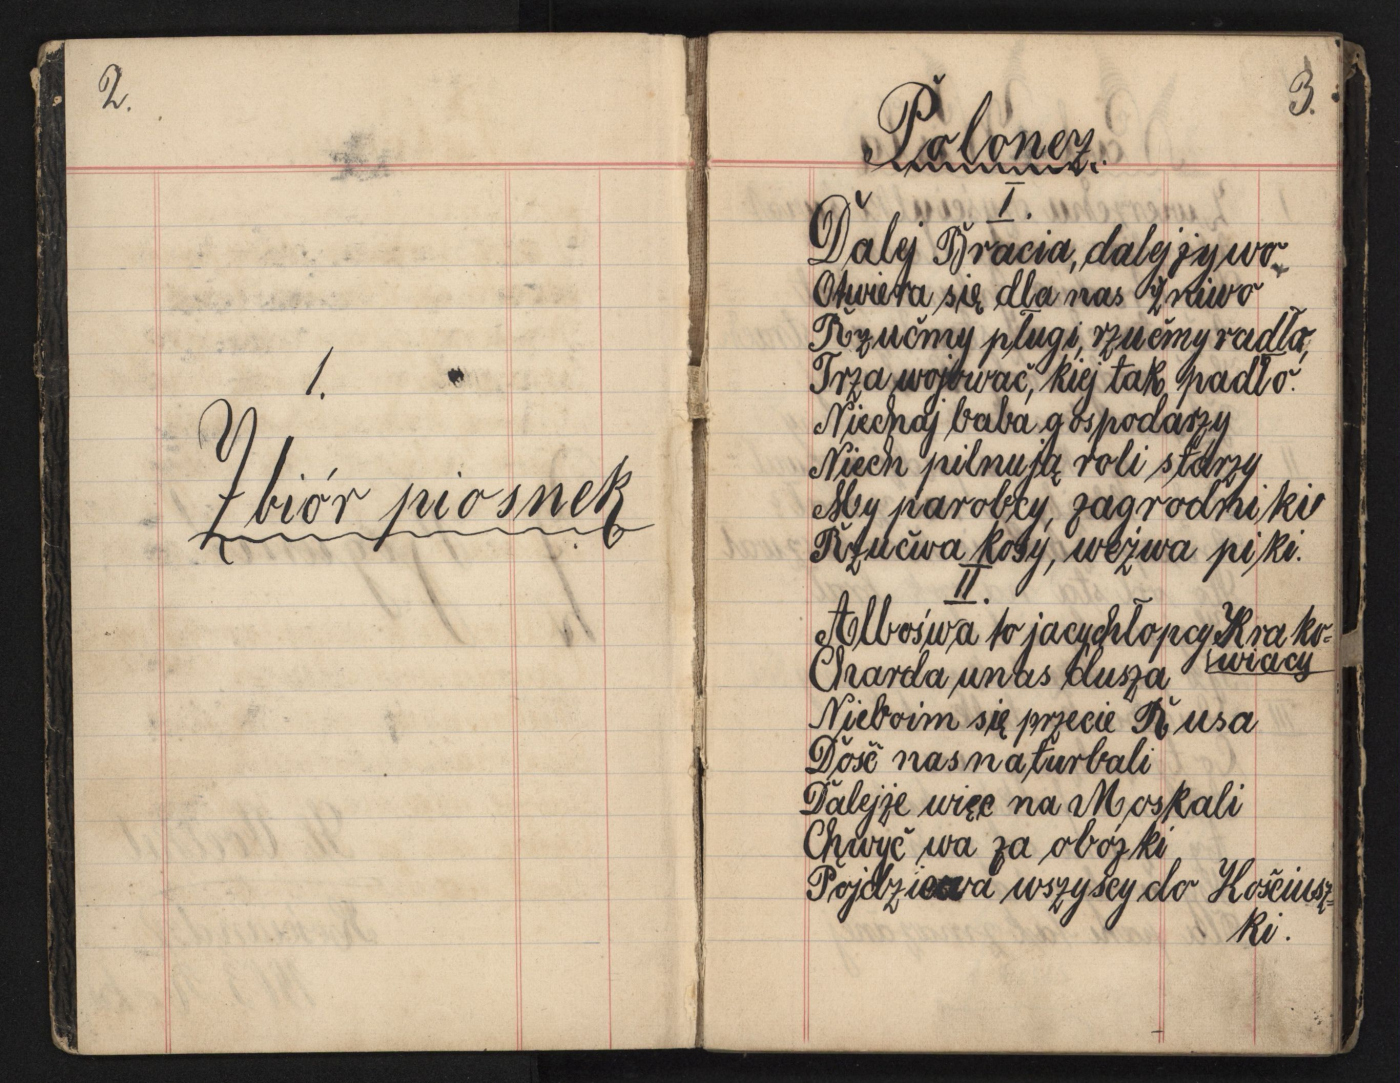 2.
1.
Zbiór piosnek
3.
Polonez.
I.
Dalej Bracia, dalej żywo
Otwiera się dla nas Żniwo
Rzućmy pługi, rzućmy radło,
Trza wojować, kiej tak padło.
Niechaj baba gospodarzy
Niech pilnują roli starzy
My parobcy, zagrodniki
Rzućwa kosy, weźwa piki.
II.
Albośwa to jacy chłopcy Krako-
wiacy
Charda unas dusza
Nieboim się przecie Rusa
Dość nas naturbali
Dalejże więc na Moskali
Chwyć wa za obóżki
Pójdziewa wszyscy do Kościusz-
ki.